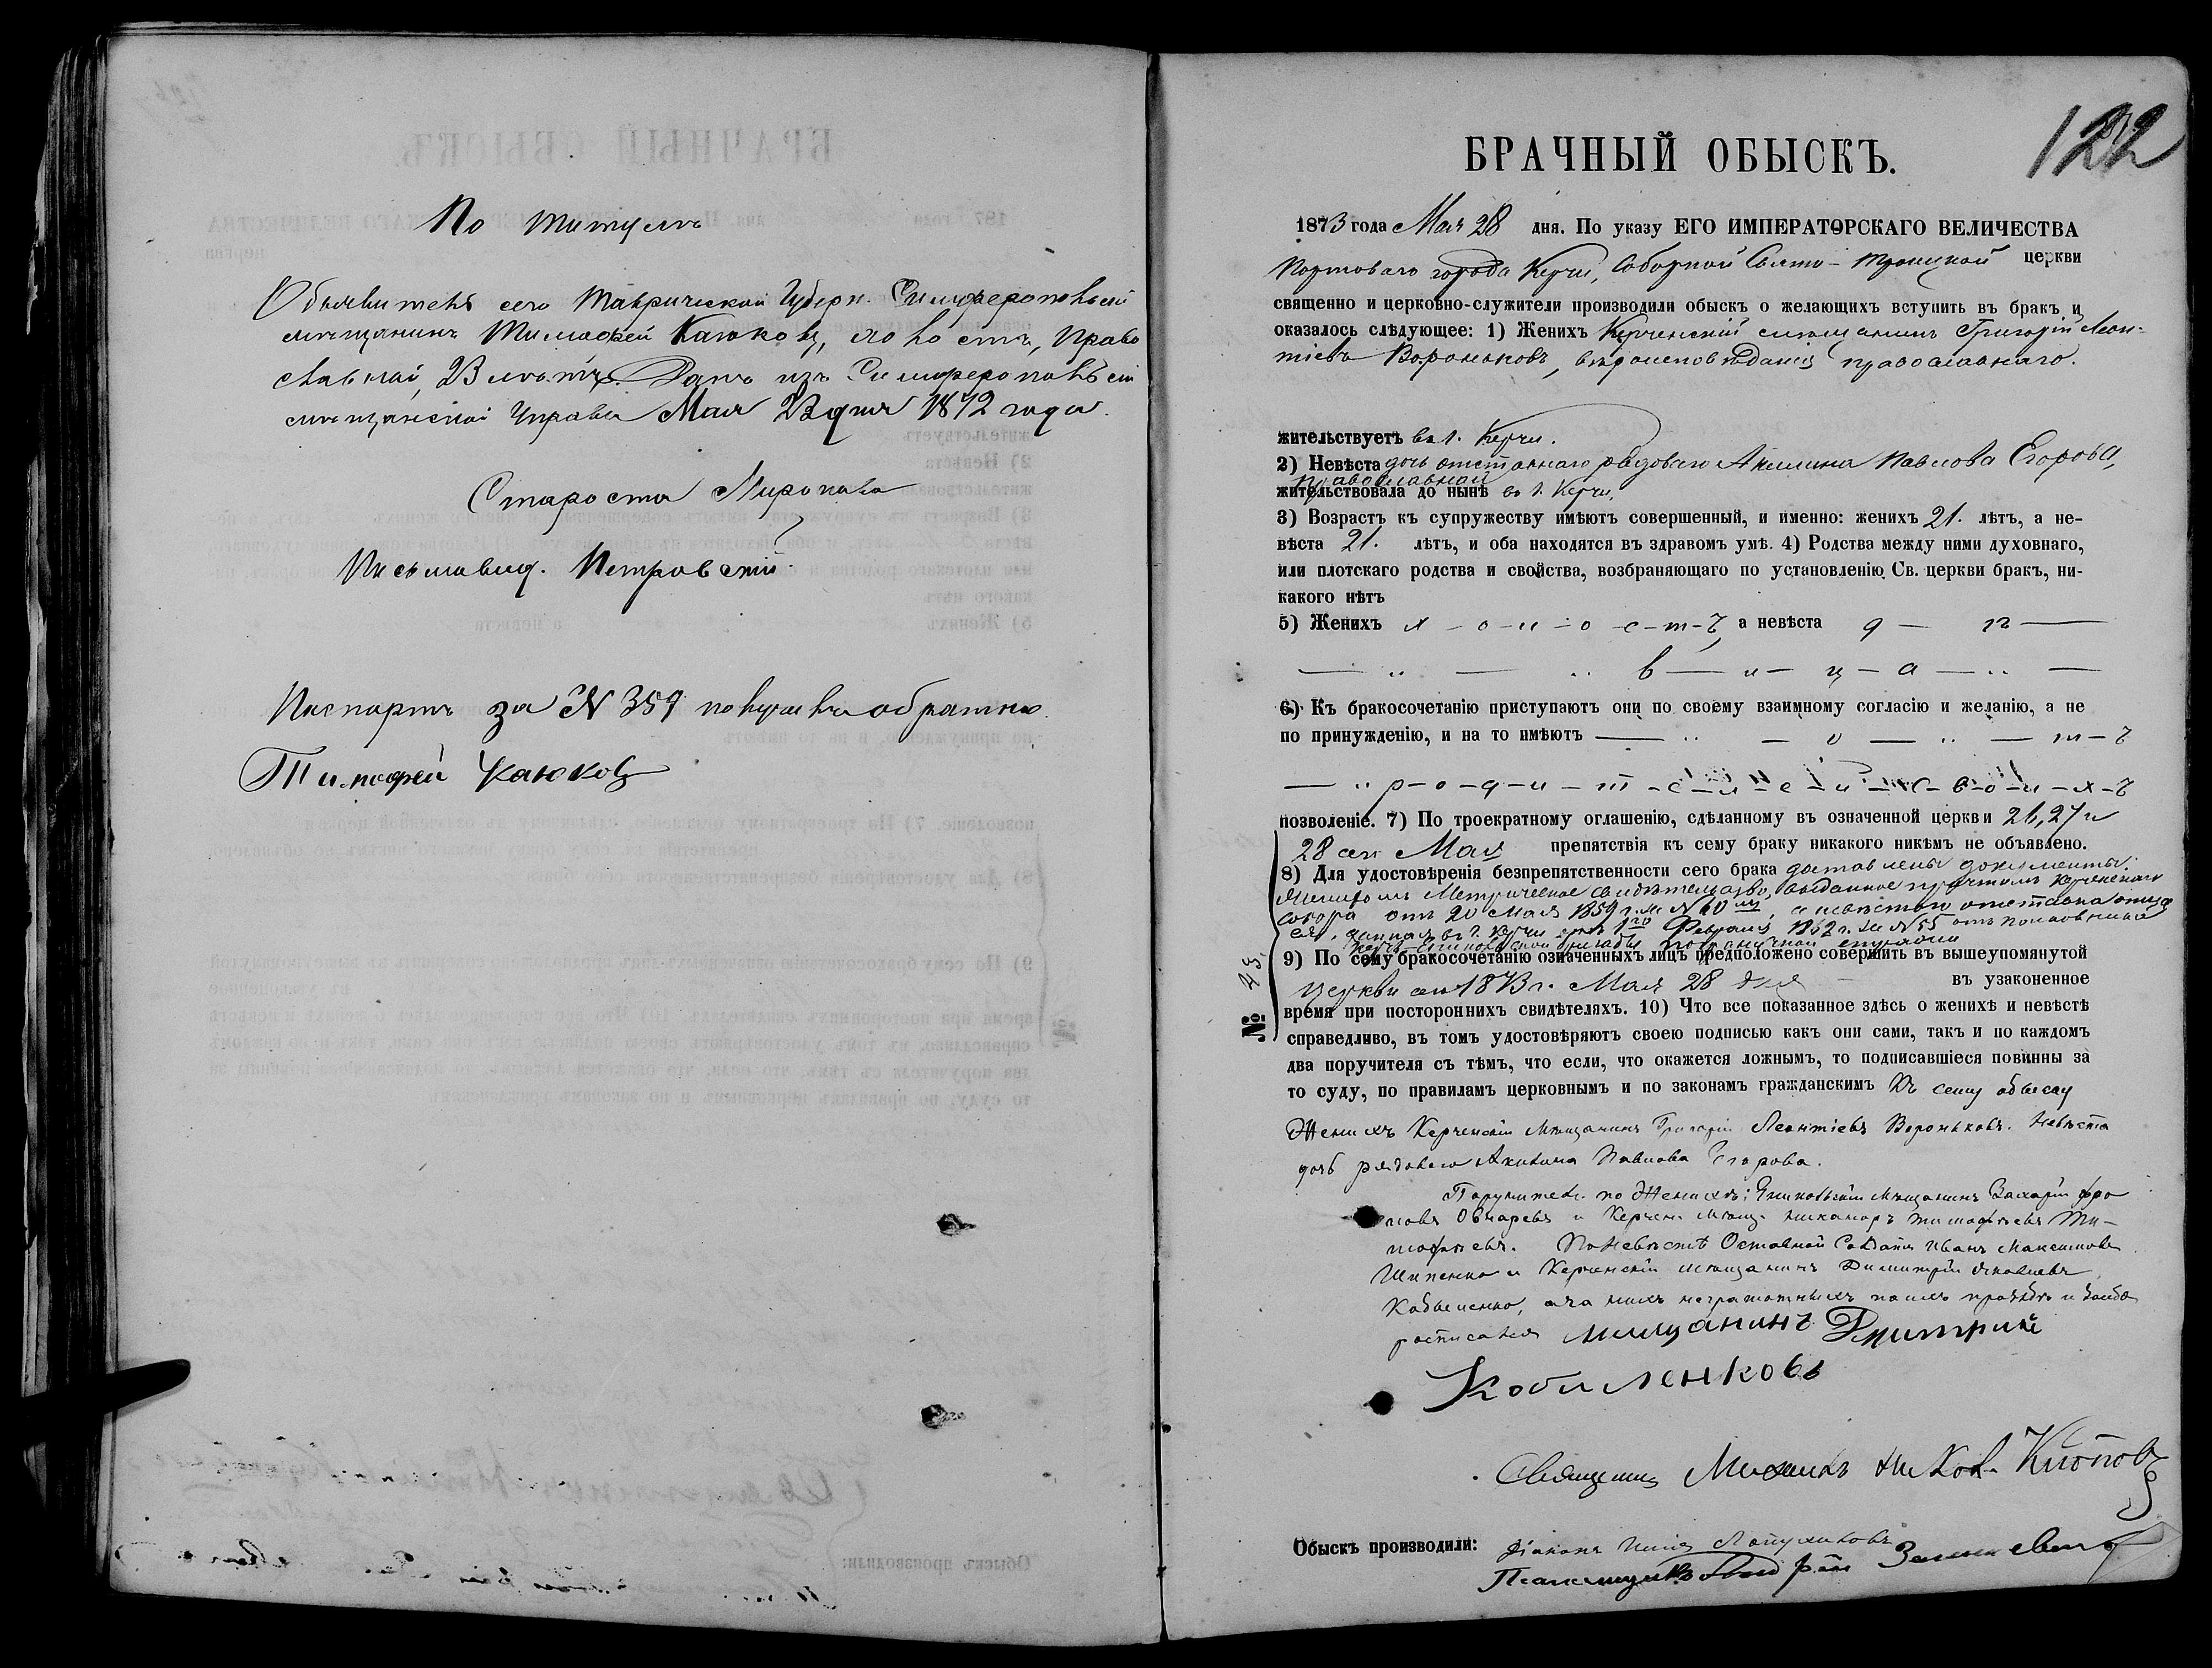 По титулѣ
Объявитель сего Таврической Губерн. Симферопольскій
мѣщанинъ Тимофей Каюковъ, холостъ, право
славный, 23 лѣтъ. Данъ изъ Симферопольской
мѣщанской Управы Мая 23 дня 1872 года.
Староста
Письмовод. Петровскій
Паспортъ за № 359 получилъ обратно.
Тимофей Каюковъ
122
БРАЧНЫЙ ОБЫСКЪ.
1873 года Мая 28 дня. По указу ЕГО ИМПЕРАТОРСКАГО ВЕЛИЧЕСТВА
Портоваго города Керчи, Соборной Свято-Троицкой церкви
священно и церковно-служители производили обыскъ о желающихъ вступить въ бракъ и
оказалось слѣдующее: 1) Женихъ Керченскій мѣщанинъ Григорій Леон-
тіевъ Вороньковъ, вѣроисповѣданія православнаго.
жительствуетъ въ г. Керчи.
2) Невѣста дочь отставнаго рядоваго Акилина Павлова Егорова,
православная
жительствовала до нынѣ въ г. Керчи.
3) Возрастъ къ супружеству имѣютъ совершенный, и именно: женихъ 21. лѣтъ, а не-
вѣста 21. лѣтъ, и оба находятся въ здравомъ умѣ. 4) Родства между ними духовнаго,
или плотскаго родства и свойства, возбраняющаго по установленію Св. церкви бракъ, ни-
какого нѣтъ
5) Женихъ х – о – л – о – с – т – ъ, а невѣста д –
в – и – ц – а –
6) Къ бракосочетанію приступаютъ они по своему взаимному согласію и желанію, а не
по принужденію, и на то имѣютъ — о — т – ъ
р – о – д – и – т – е – л – е – й – с – в – о – и – х – ъ
позволеніе. 7) По троекратному оглашенію, сдѣланному въ означенной церкви 26, 27 и
28 Мая препятствія къ сему браку никакого никѣмъ не объявлено.
8) Для удостовѣренія безпрепятственности сего брака доставлены документы:
Женихомъ Метрическое свидѣтельство, выданное причтомъ Керченскаго
собора отъ 20 Мая 1859 г. за № 60, а невѣстою отставка отца
ея, данная въ г. Керчи 1го Февраля 1862 г. за № 55 отъ
9) По сему бракосочетанію означенныхъ лицъ предположено совершить въ вышеупомянутой
церкви 1873 г. Мая 28 дня въ узаконенное
время при постороннихъ свидѣтеляхъ. 10) Что все показанное здѣсь о женихѣ и невѣстѣ
справедливо, въ томъ удостовѣряютъ своею подписью какъ они сами, такъ и по каждомъ
два поручителя съ тѣмъ, что если, что окажется ложнымъ, то подписавшіеся повинны за
то суду, по правиламъ церковнымъ и по законамъ гражданскимъ Къ сему обыску
№
Женихъ Керченскій Мѣщанинъ Григорій Леонтіевъ Вороньковъ. Невѣста
дочь рядоваго Акилина Павлова Егорова.
Поручители по Женихѣ: Мѣщанинъ Захарій Фро
ловъ Овчаревъ и Керчен. Мѣщ. Никаноръ Тимофѣевъ Ти-
мофѣевъ. По Невѣстѣ Отставной Солдатъ Иванъ Максимовъ
Шипенко и Керченскій мѣщанинъ Димитрій Яковлевъ
Кобыленко, а за нихъ неграмотныхъ по ихъ прозьбѣ и за себя
росписался мищанинъ Дмитрий
Кобиленковъ
Священникъ Михаилъ
Обыскъ производили: Діаконъ Илія Лопушковъ
Псаломщикъ